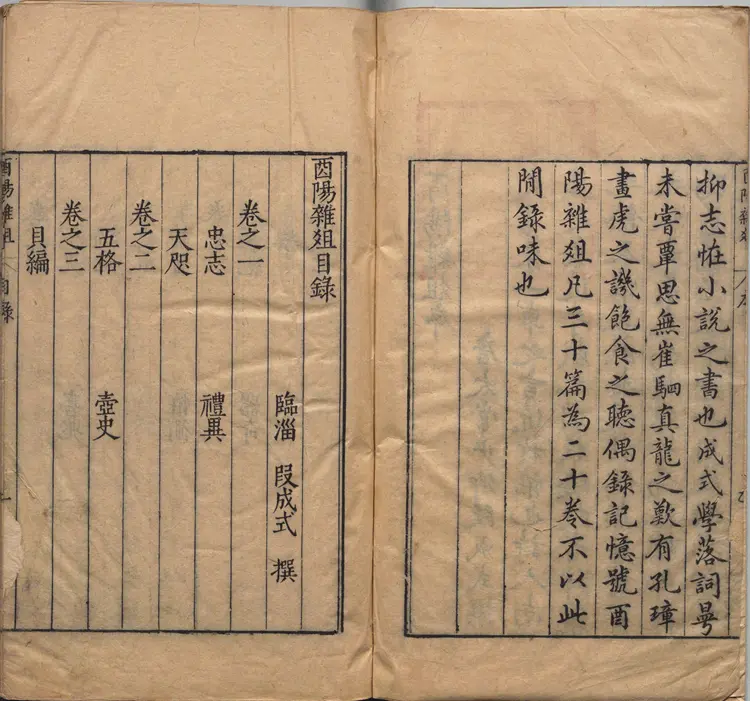 抑志恠小說之書也成式學落詞曼
未嘗覃思無崔駟真龍之歎有孔璋
畫虎之譏飽食之聽偶錄記憶號酉
陽雜爼凡三十篇為二十卷不以此
間錄味也
酉陽雜爼目錄
臨淄 段成式 撰
卷之一
忠志 禮異
天咫
卷之二
五格 壺史
卷之三
貝編
酉陽雜爼 目錄 一